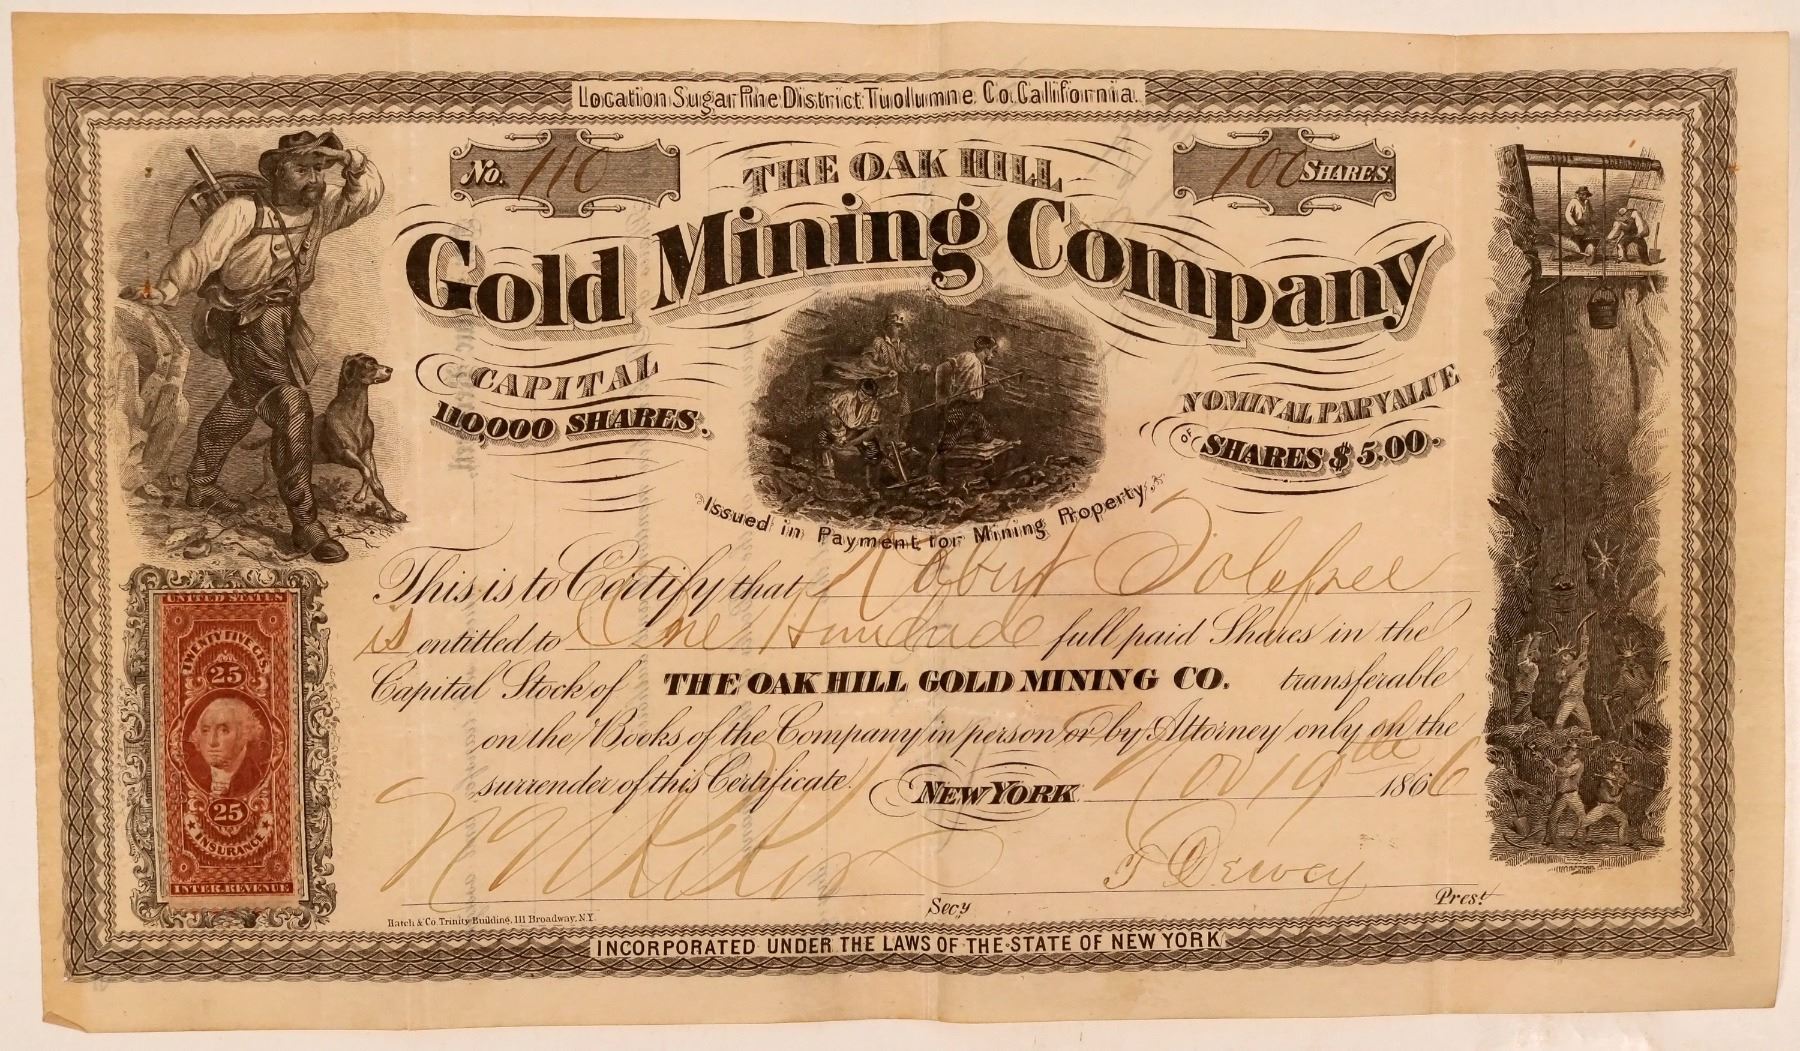 Location Sugar Pine District Tuolumne Co. California.
No. 110
100 SHARES
THE OAK HILL
Gold Mining Company
CAPITAL
110,000 SHARES.
NOMINAL PAR VALUE
OF SHARES $5.00.
Issued in Payment for Mining Property
This is to Certify that Robert Tolefree
is entitled to One Hundred full paid Shares in the
Capital Stock of THE OAK HILL GOLD MINING CO. transferable
on the Books of the Company in person or by Attorney only on the
surrender of this Certificate. NEW YORK Nov 19th 1866
T Dewey
Secy
Prest
Hatch & Co. Trinity Building, 111 Broadway, N.Y.
INCORPORATED UNDER THE LAWS OF THE STATE OF NEW YORK
UNITED STATES
TWENTY FIVE CTS.
25
25
INSURANCE
INTER. REVENUE